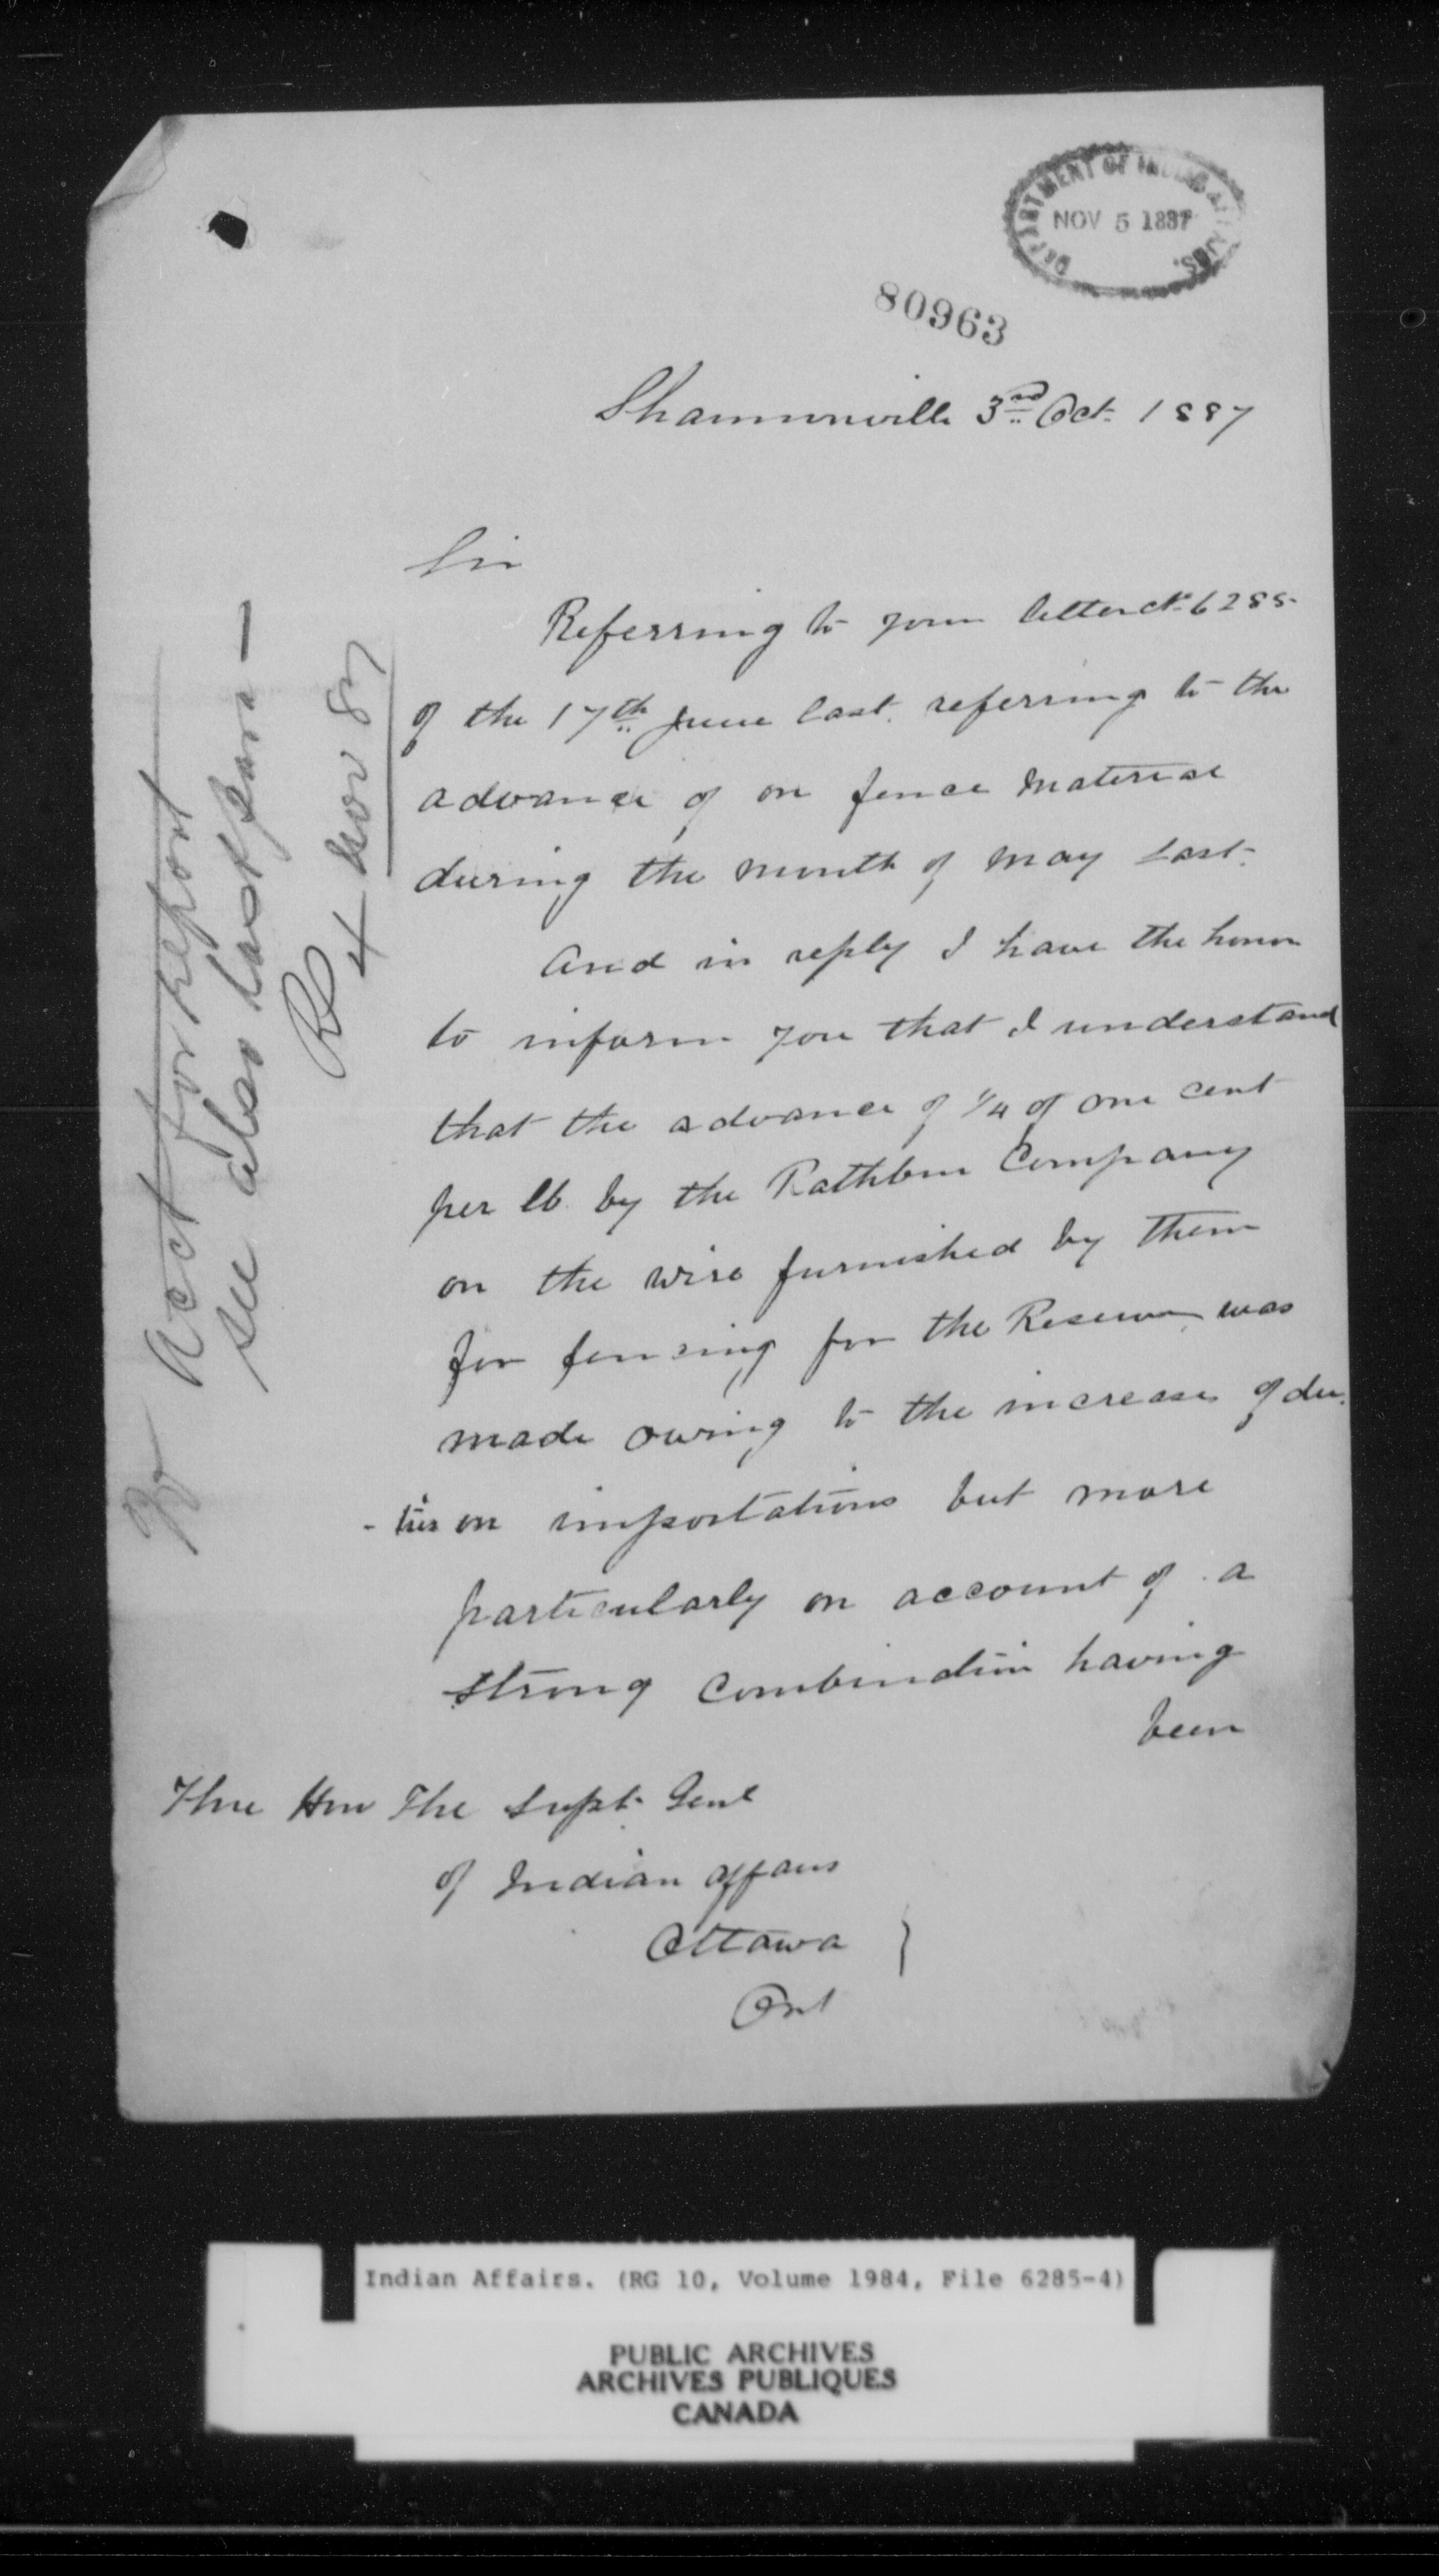 DEPARTMENT OF INDIAN AFFAIRS.
NOV 5 1887
80963
Shannonville 3rd Oct. 1887
Sir
Referring to your letter No 6285-
of the 17th June last. referring to the
advance of on fence material
during the month of May last.
And in reply I have the honor
to inform you that I understand
that the advance of 1/4 of one cent
per lb. by the Rathbun Company
on the wire furnished by them
for fencing for the Reserve, was
made owing to the increase of du-
-ties on importations but more
particularly on account of a
strong combination having
been
The Hon The Supt. Genl
of Indian Affairs
Ottawa }
Ont
Acct for report
see also last
4 Nov 87
Indian Affairs. (RG 10, Volume 1984, File 6285-4)
PUBLIC ARCHIVES
ARCHIVES PUBLIQUES
CANADA